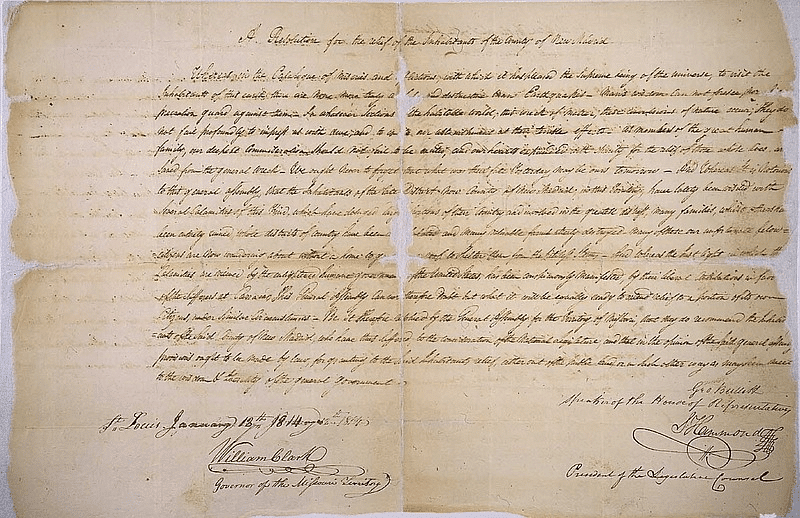 A Resolution for the relief of the Inhabitants of the County of New Madrid
Whereas in the Catalogue of miseries and afflictions, with which it has pleased the Supreme being of the universe, to visit the
Inhabitants of this earth, there are none more truly and destructive than Earthquakes – Man's wisdom can not nor
guard against them – In whatever Sections of the habitable world, this wreck of matter, these convulsions of nature occur, they do
not fail profoundly to impress us with awe, and to us, our astonishment at their terrible effects – As members of the great human
family, our deepest commiseration should not fail to be excited, and our hearts with charity for the relief of those whose lives are
spared from the general wreck – We ought never to forget that what was their fate Yesterday may be ours tomorrow – And Whereas it is
to this general assembly, that the Inhabitants of the late District, now County of New Madrid in this Territory, have lately been visited with
several calamities of this kind, which have portions of their Country and involved in the greatest distress many families, whilst others have
been entirely ruined, whole districts of country have been and many destroyed Many of these our unfortunate fellow
citizens are now wandering about without a home to go to or a roof to shelter them from the pitiless Storms – And Whereas the light in which
Calamities are viewed by the enlightened humane government of the United States, has been conspicuously Manifested by their liberal contributions in favor
of the Sufferers at Caraccas, This General Assembly can not doubt but what it will be equally ready to extend relief to a portion of its own
Citizens under Similar Circumstances – Be it therefore resolved by the General Assembly for the Territory of Missouri, that they do recommend the Inhabit-
ants of the said County of New Madrid, who have thus suffered to the consideration of the National legislature, and that in the opinion of the said general assembly
provisions ought to be made by law for granting to the said Inhabitants relief, either out of the public lands or in such other way as may seem meet
to the wisdom & liberality of the general Government
Geo Bullitt
Speaker of the House of Representatives
St. Louis January 12th 1814
S Hammond
William Clark
President of the Legislative Counsel
Governor of the Missouri Territory